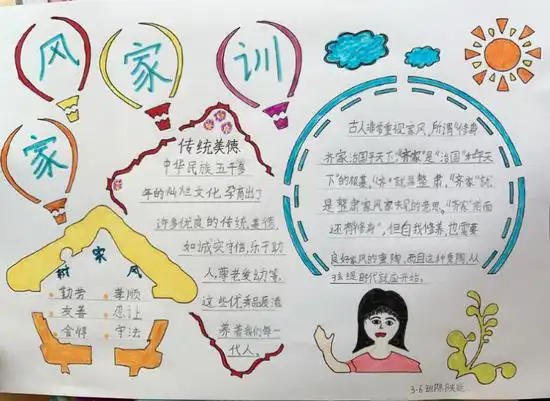 家
风
家
训
传统美德
中华民族五千多
年的灿烂文化,孕育出了
许多优良的传统美德,
如诚实守信,乐于助
人,尊老爱幼等,
这些优秀品质滋
养着我们每一
代人。
古人非常重视家风,所谓“修身
齐家治国平天下,“齐家”是“治国”“平天
下”的根基,“齐”就是整肃,“齐家”就
是整肃家风家教的意思。“齐家”前面
还有“修身”,但自我修养,也需要
良好家风的熏陶,而且这种熏陶,从
孩提时代就应开始。
树家风
勤劳 孝顺
友善 忍让
守法
3.6班陈